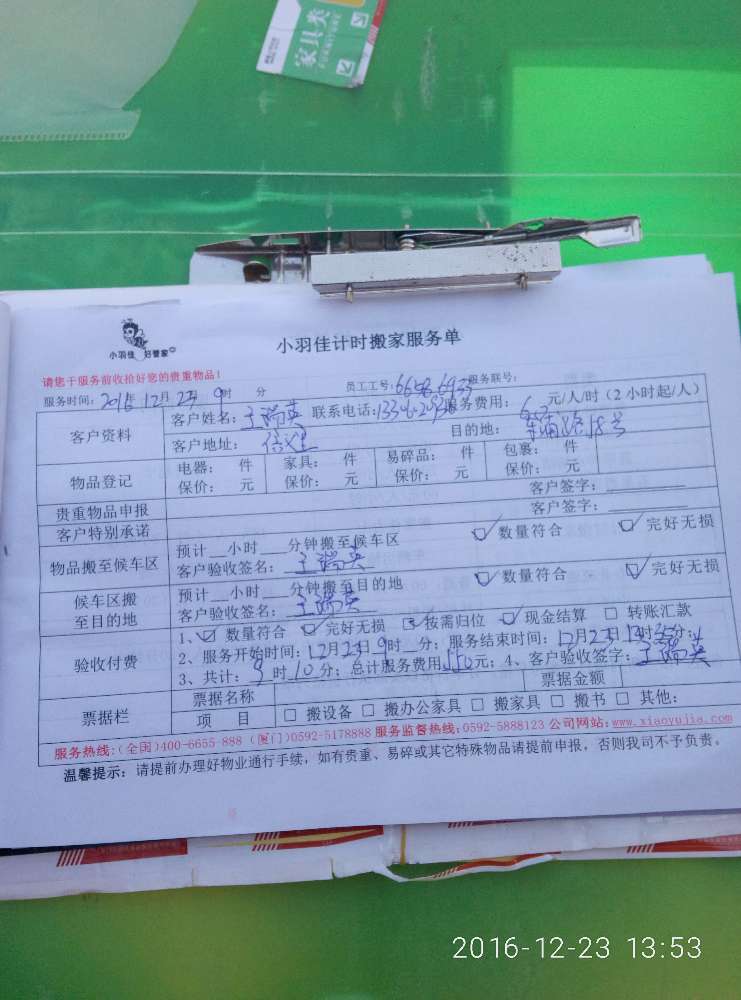 家具类
FURNITURE
小羽佳 好管家
小羽佳计时搬家服务单
请您于服务前收拾好您的贵重物品!
服务时间: 2016年 12月 23日 9时 分 员工工号: 服务联号:
客户资料 客户姓名: 王瑞英 联系电话: 服务费用: 元/人/时 (2小时起/人)
客户地址: 目的地:
物品登记 电器: 件 家具: 件 易碎品: 件 包裹: 件
保价: 元 保价: 元 保价: 元 保价: 元
贵重物品申报 客户签字:
客户特别承诺 客户签字:
物品搬至候车区 预计__小时___分钟搬至候车区 ☑ 数量符合 ☑ 完好无损
客户验收签名: 王瑞英
候车区搬至目的地 预计__小时___分钟搬至目的地 ☑ 数量符合 ☑ 完好无损
客户验收签名: 王瑞英
验收付费 1、☑ 数量符合 ☑ 完好无损 ☑ 按需归位 ☑ 现金结算 □ 转账汇款
2、服务开始时间: 12月23日9时 分; 服务结束时间: 12月23日 时 分;
3、共计: 时10分; 总计服务费用 元; 4、客户验收签字: 王瑞英
票据栏 票据名称 票据金额
项 目 □ 搬设备 □ 搬办公家具 □ 搬家具 □ 搬书 □ 其他:
服务热线: (全国)400-6655-888 (厦门)0592-5178888 服务监督热线: 0592-5888123 公司网站: www.xiaoyujia.com
温馨提示: 请提前办理好物业通行手续, 如有贵重、易碎或其它特殊物品请提前申报, 否则我司不予负责。
2016-12-23 13:53